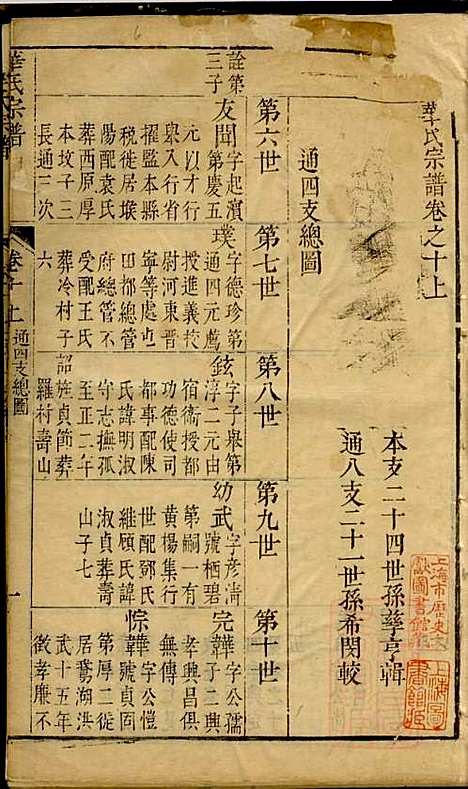 華氏宗譜卷之十上
本支二十四世孫孳亨輯
通八支二十一世孫希閔較
通四支總圖
第六世
第七世
第八世
第九世
第十世
詮第三子
友聞字起濱
第慶五
元以才行
舉入行省
擢監本縣
稅徙居堠
陽配袁氏
葬西原厚
本坟子三
長通三次
璞字德珍第
通四元薦
投進義校
尉河東晋
寧等處屯
田都總管
府總管不
受配王氏
葬冷村子
六
鉉字子舉第
淳二元由
宿衞授都
功德使司
都事配陳
氏諱明淑
守志撫孤
至正二年
詔旌貞節葬
羅村壽山
幼武字彦清
號栖碧
第嗣一有
黄楊集行
世配鄧氏
維顧氏諱
淑貞葬壽
山子七
完韡字公孺
子二興
孝興昌俱
無傳
悰韡字公愷
號貞固
第厚二徙
居鵞湖洪
武十五年
徵孝廉不
華氏宗譜
卷十上
通四支總圖
一
上海市歷史文獻圖書館藏
上海圖書館藏